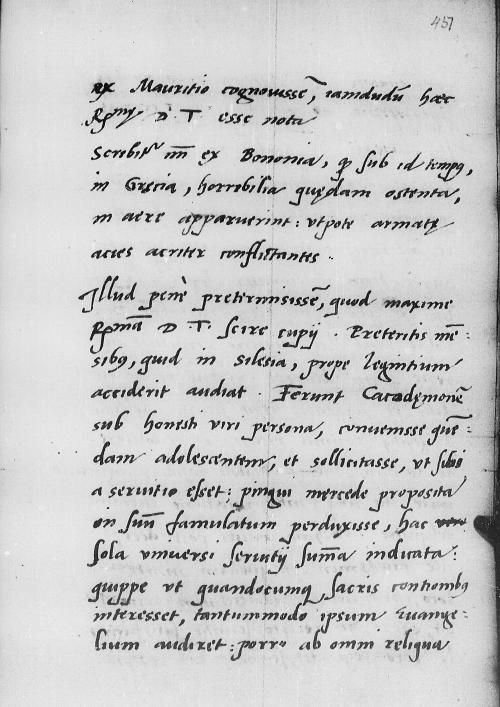 451
ex Mauritio cognouissē, iamdudū haec
R̄mę D T esse nota
Scribit̃ nr̄ ex Bononia, ꝙ sub id tempꝰ,
in Gręcia, horribilia quędam ostenta,
in aere apparuerint: vtpote armatę
acies acriter conflictantes.
Illud penè pretermisissē, quod maxime
R̄mā D T. scire cupij. Preteritis mē:
sibꝰ, quid in Silesia, prope legnitium
acciderit audiat. Ferunt Cacodęmonē
sub honesti viri persona, conuenisse quē:
dam adolescentem, et sollicitasse, vt sibi
a seruitio esset: pingui mercede proposita
in suū famulatum perduxisse, hac
sola vniuersi seruitij sum̄a indicata:
quippe vt quandocumqꝫ sacris contionibꝰ
interesset, tantummodo ipsum Euange:
lium audiret: porro ab omni reliqua